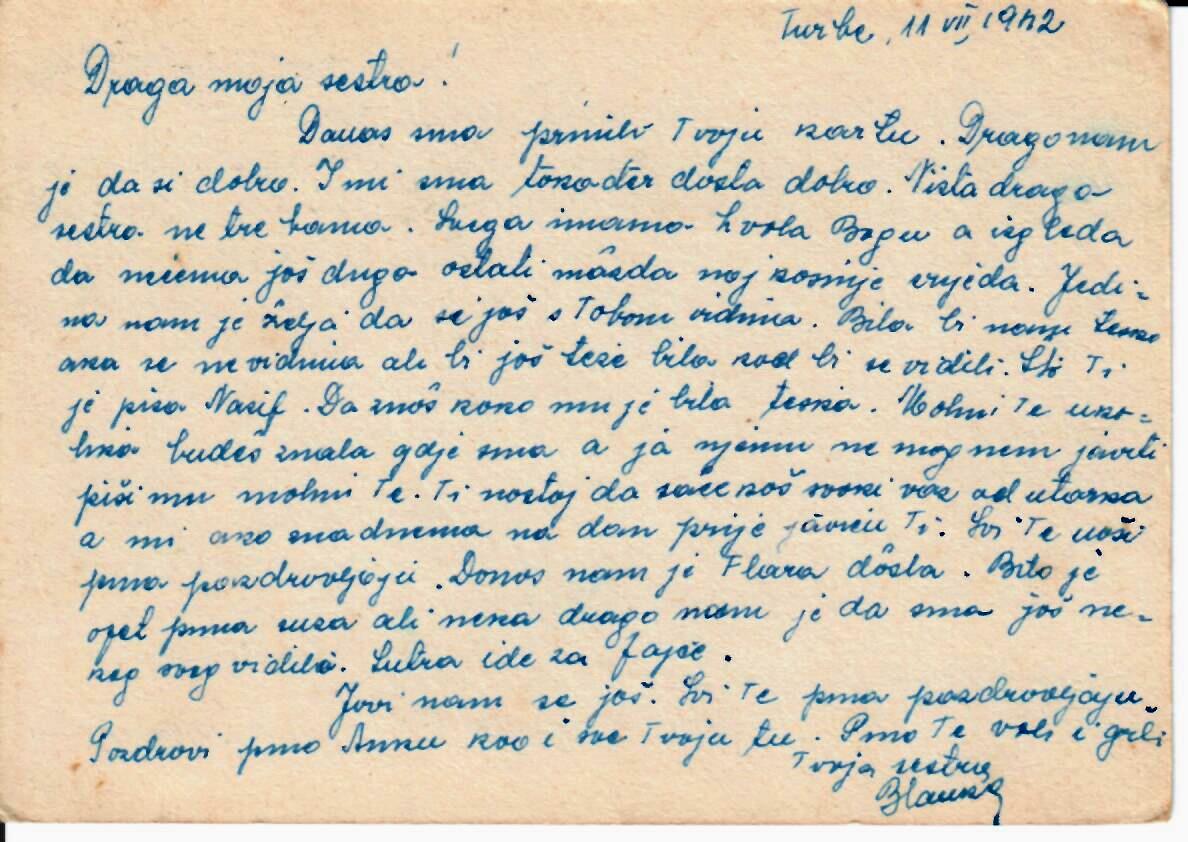 Turbe, 11 VII, 1942
Draga moja sestro!
Danas smo primili Tvoju kartu. Drago nam
je da si dobro. I mi smo također dosta dobro. Ništa draga
sestro ne trebamo. Svega imamo hvala Bogu a izgleda
da nećemo još dugo ostati možda najkasnije srijeda. Jedi-
na nam je želja da se još s Tobom vidimo. Bilo bi nam teško
ako se ne vidimo ali bi još teže bilo kad bi se vidili. Što Ti
je piso Nasif. Da znaš kako mu je bilo teško. Molim Te uko-
liko budeš znala gdje smo a ja njemu ne mognem javiti
piši mu molim Te. Ti nastoj da sačekaš svaki voz od utorka
a mi ako znadnemo na dan prije javiću Ti. Svi Te naši
puno pozdravljaju. Danas nam je Flora došla. Bilo je
opet puno suza ali neka drago nam je da smo još ne-
kog svog vidili. Sutra ide za Jajce.
Javi nam se još. Svi Te puno pozdravljaju.
Pozdravi puno Anku kao i sve Tvoju tu. Puno Te voli i grli
Tvoja sestra
Blanka